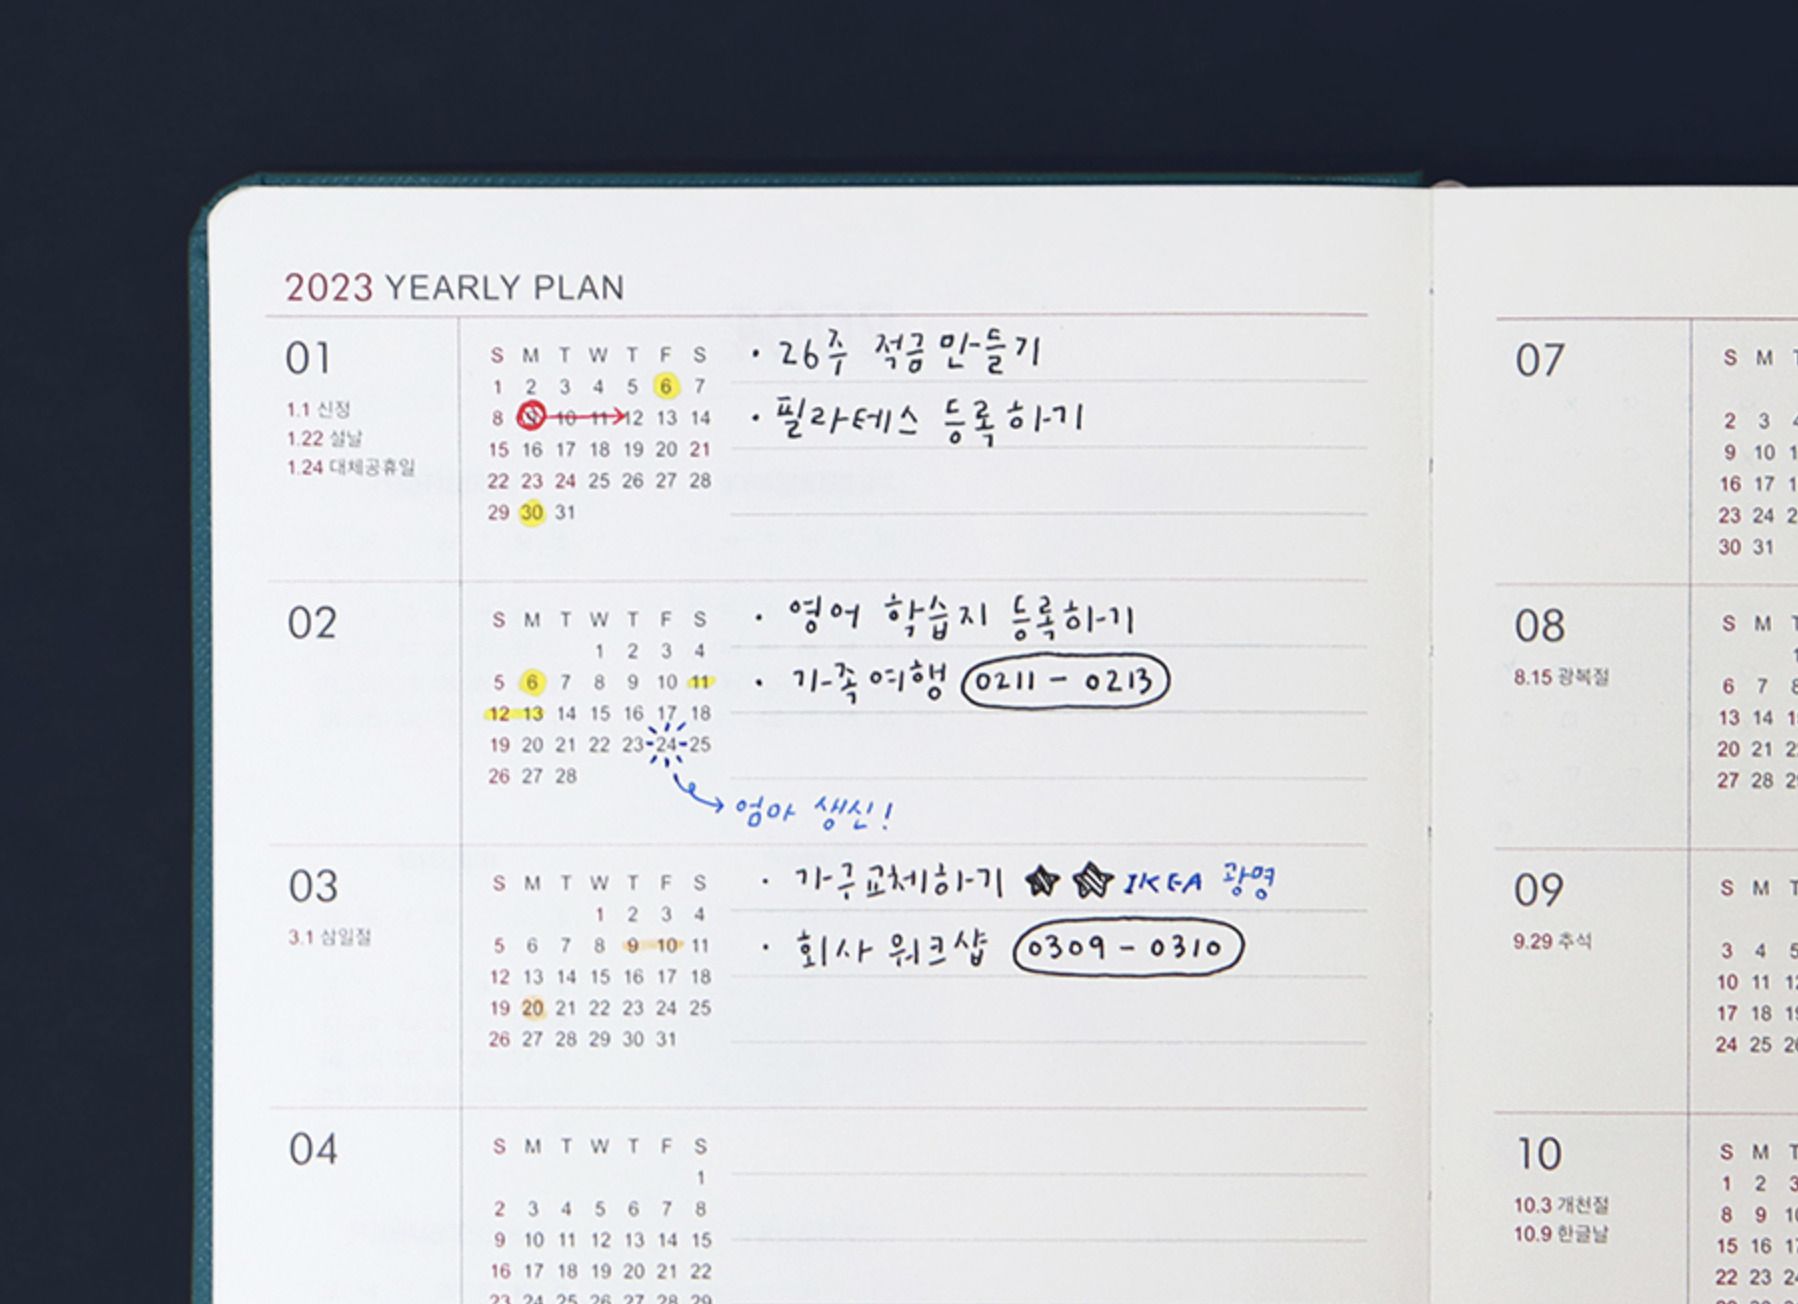 2023 YEARLY PLAN
01
1.1 신정
1.22 설날
1.24 대체공휴일
S M T W T F S
1 2 3 4 5 6 7
8 9 10 11 12 13 14
15 16 17 18 19 20 21
22 23 24 25 26 27 28
29 30 31
· 26주 적금 만들기
· 필라테스 등록하기
02
S M T W T F S
1 2 3 4
5 6 7 8 9 10 11
12 13 14 15 16 17 18
19 20 21 22 23 24 25
26 27 28
· 영어 학습지 등록하기
· 가족여행 0211 - 0213
엄마 생신!
03
3.1 삼일절
S M T W T F S
1 2 3 4
5 6 7 8 9 10 11
12 13 14 15 16 17 18
19 20 21 22 23 24 25
26 27 28 29 30 31
· 가구교체하기 ★ ★ IKEA 광명
· 회사 워크샵 0309 - 0310
04
S M T W T F S
1
2 3 4 5 6 7 8
9 10 11 12 13 14 15
16 17 18 19 20 21 22
23 24 25 26 27 28 29
07
S M T
2 3 4
9 10
16 17
23 24
30 31
08
8.15 광복절
S M T
1
6 7 8
13 14
20 21
27 28
09
9.29 추석
S M
3 4 5
10 11
17 18
24 25
10
10.3 개천절
10.9 한글날
S M T
1 2 3
8 9
15 16
22 23